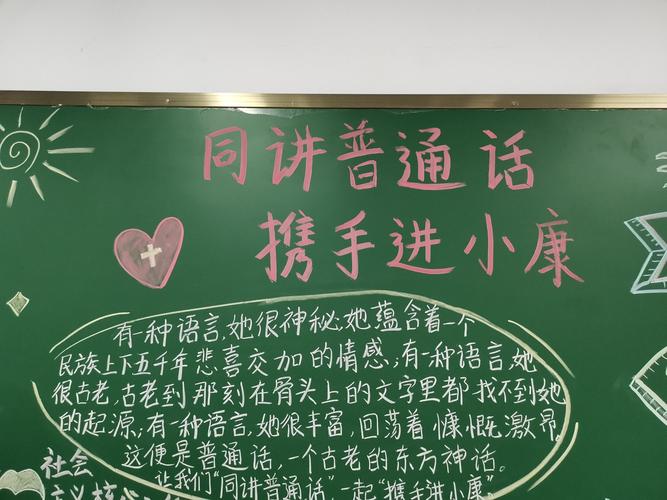 同讲普通话
携手进小康
有一种语言,她很神秘;她蕴含着一个
民族上下五千年悲喜交加的情感;有一种语言,她
很古老,古老到那刻在骨头上的文字里都找不到她
的起源;有一种语言,她很丰富,回荡着慷慨激昂。
这便是普通话,一个古老的东方神话。
让我们“同讲普通话”一起“携手进小康”
社会
主义核心